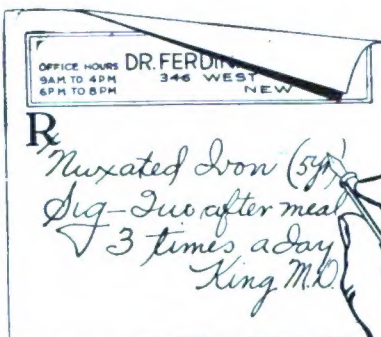 OFFICE HOURS
9 AM TO 4 PM
6 PM TO 8 PM
DR. FERDIN
346 WEST
NEW
Rx
Nuxated Iron (5gr)
Sig - Two after meal
3 times a day
King M.D.